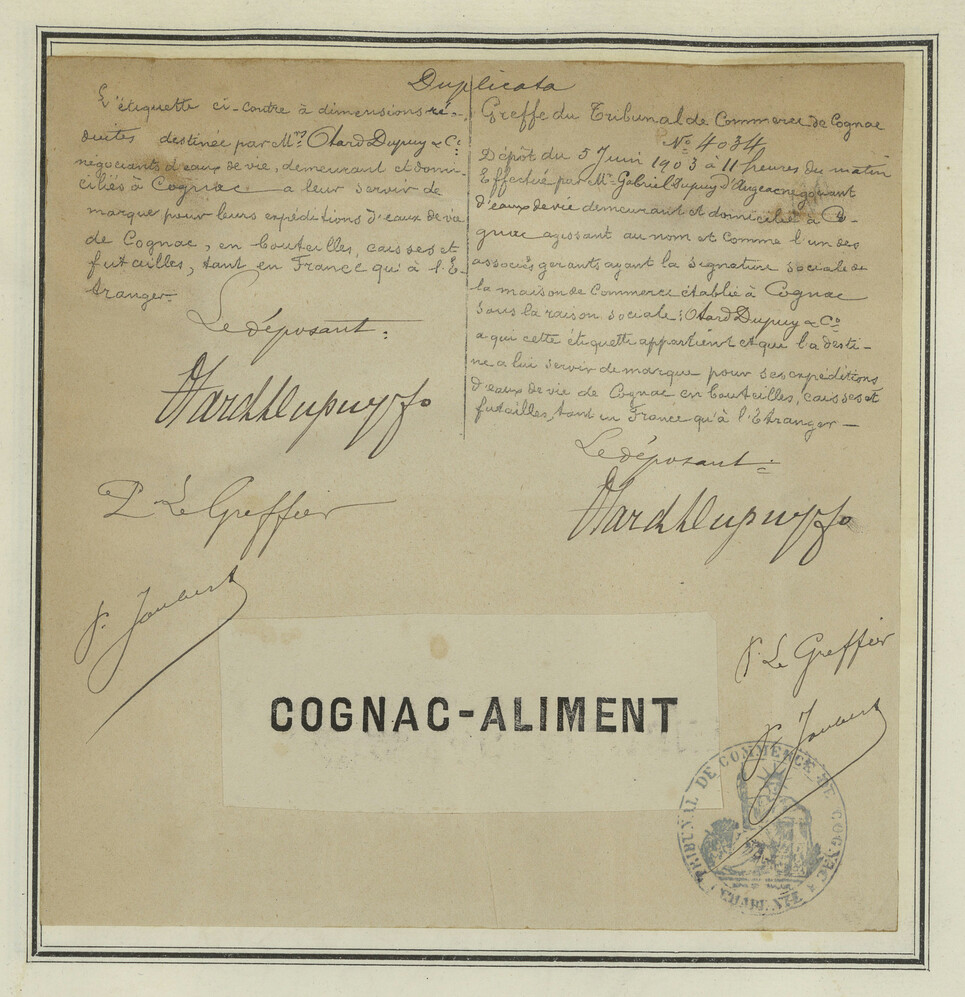 Duplicata
L'étiquette ci-contre à dimensions ré-
duites destinée par M.rs Otard Dupuy & Cie
négociants d'eaux de vie, demeurant et domi-
ciliés à Cognac a leur servir de
marque pour leurs expéditions d'eaux de vie
de Cognac, en bouteilles, caisses et
futailles, tant en France qui à l'E-
tranger.
Le déposant:
Otard Dupuy & Co
P. Le Greffier
P. Joubert
Greffe du Tribunal de Commerce de Cognac
No 4034
Dépôt du 5 Juin 1903 à 11 heures du matin
Effectué par Mr Gabriel Dupuy d'Angeac négociant
d'eaux de vie demeurant et domicilié à Co-
gnac agissant au nom et comme l'un des
associés gérants ayant la signature sociale de
la maison de Commerce établie à Cognac
sous la raison sociale: Otard Dupuy & Co
a qui cette étiquette appartient et qui la desti-
ne a lui servir de marque pour ses expéditions
d'eaux de vie de Cognac en bouteilles, caisses et
futailles, tant en France qu'à l'Etranger —
Le déposant:
Otard Dupuy & Co
P. Le Greffier
P. Joubert
COGNAC-ALIMENT
TRIBUNAL DE COMMERCE DE COGNAC
CHARENTE